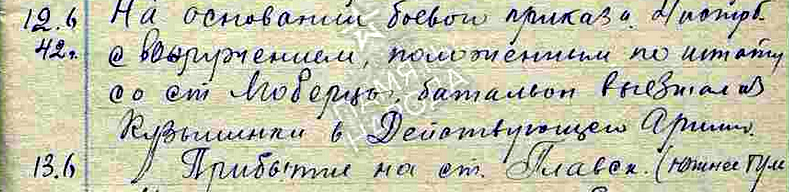 12.6 На основании боевой приказа
42г. с вооружением, положенным по штату
со ст Люберцы, батальон выезжал из
Кузьминки в Действующею Армию.
13.6 Прибытие на ст. Плавск. (южнее Тулы
ПАМЯТЬ НАРОДА